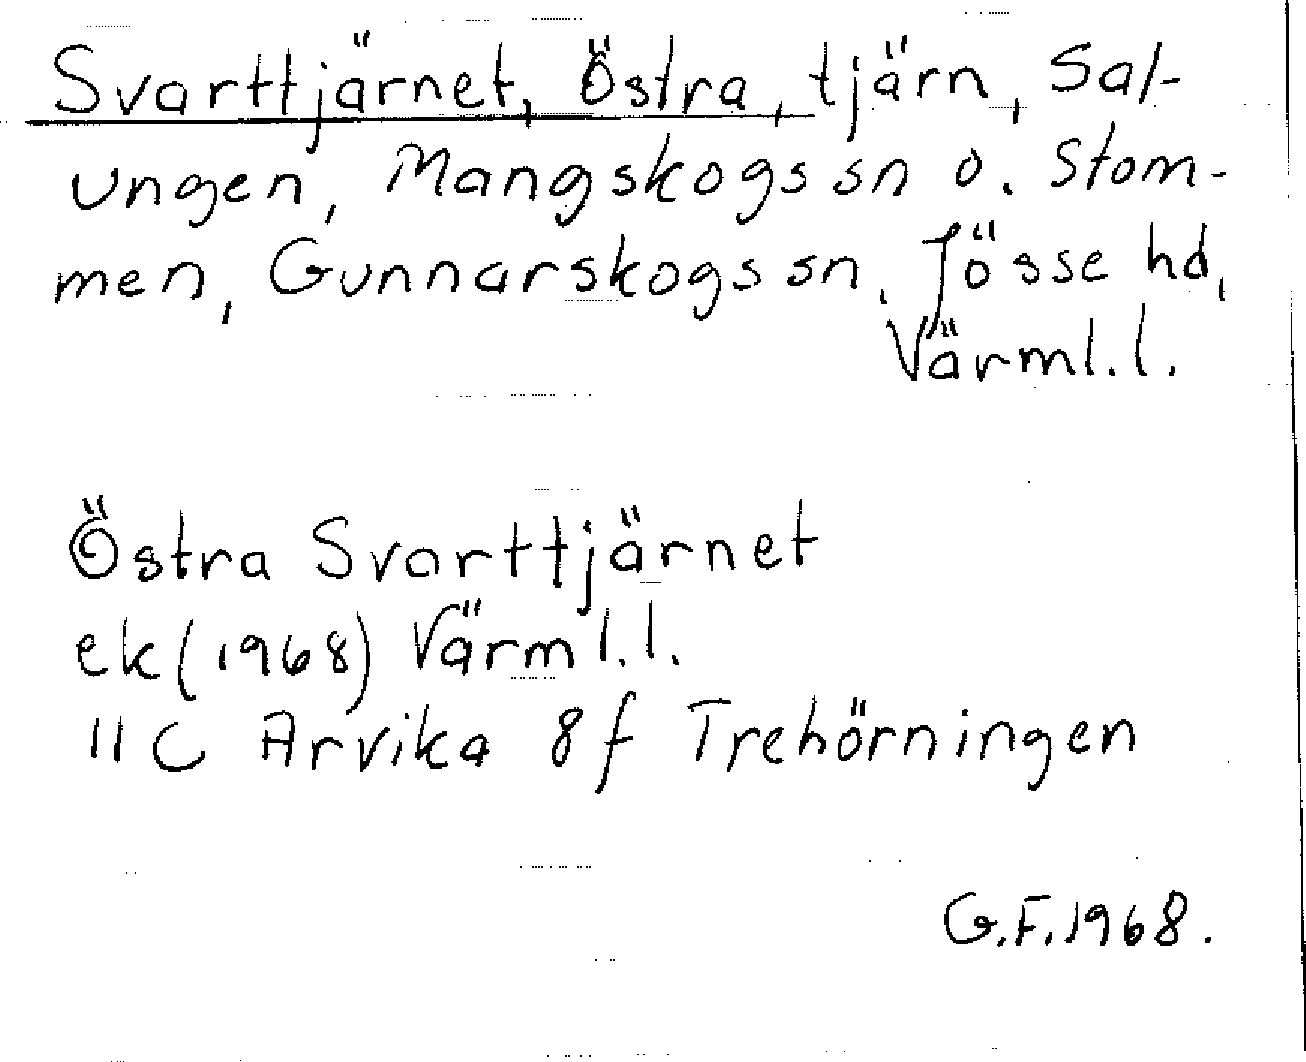 Svarttjärnet, Östra, tjärn, Sal-
ungen, Mangskogs sn o. Stom-
men, Gunnarskogs sn, Jösse hd,
Värml. l.
Östra Svarttjärnet
ek (1968) Värml. l.
11 C Arvika 8 f Trehörningen
G.F. 1968.